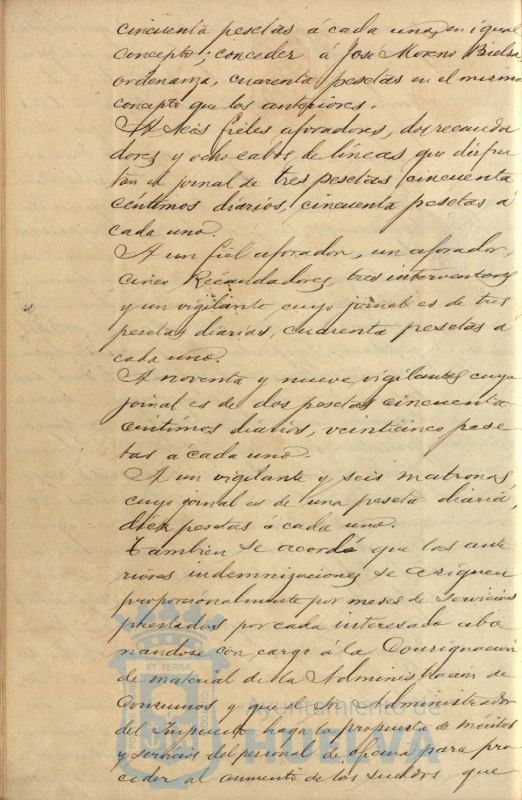 cincuenta pesetas á cada uno, en igual
concepto; conceder á José Moreno Bielsa,
ordenanza, cuarenta pesetas en el mismo
concepto que los anteriores.
A seis fieles aforadores, dos recauda
dores y ocho cabos de líneas que disfru
tan el jornal de tres pesetas cincuenta
centimos diarios, cincuenta pesetas á
cada uno.
A un fiel aforador, un aforador,
cinco Recaudadores, tres interventores
y un vigilante cuyo jornal es de tres
pesetas diarias, cuarenta pesetas á
cada uno.
A noventa y nueve vigilantes cuyo
jornal es de dos pesetas cincuenta
centimos diarios, veinticinco pese
tas á cada uno.
A un vigilante y seis matronas,
cuyo jornal es de una peseta diaria,
diez pesetas á cada uno.
Tambien se acordó que las ante
riores indemnizaciones se
proporcionalmente por meses de servicios
prestados por cada interesado abo
nandose con cargo á la Consignacion
de material de la Administracion de
Consumos y que el Sr. Administrador
del Impuesto haga la propuesta de méritos
y servicios del personal de oficina para pro
ceder al aumento de los sueldos que
ET TERRAE
Ayuntamiento de
HUELVA